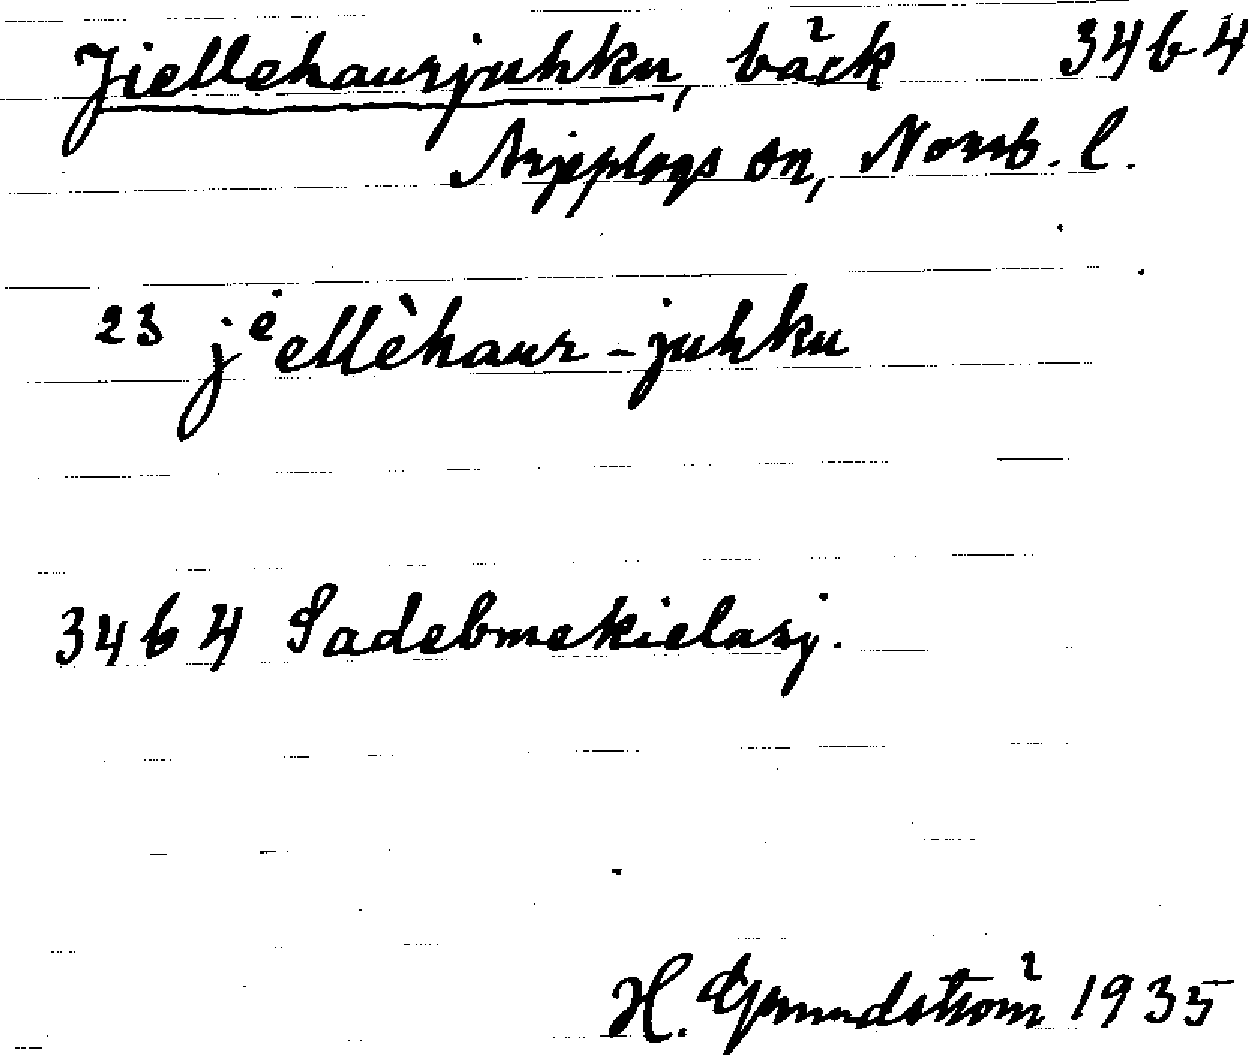 Jiellehaurjuhku, bäck 34b4
Arjeplogs sn, Norrb. l.
23 jᵉellèhaur-juhku
34b4 Sadebmekielasj.
H. Grundström 1935